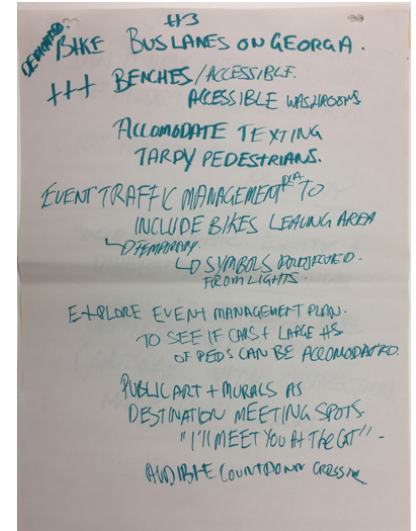 #3
DEDICATED BIKE BUS LANES ON GEORGIA.
+++ BENCHES/ACCESSIBLE.
ACCESSIBLE WASHROOMS
ACCOMODATE TEXTING
TARDY PEDESTRIANS.
EVENT TRAFFIC MANAGEMENT TO
INCLUDE BIKES LEAVING AREA
TEMPORARY.
SYMBOLS PROJECTED
FROM LIGHTS.
EXPLORE EVENT MANAGEMENT PLAN.
TO SEE IF CARS + LARGE #S
OF PEDS CAN BE ACCOMODATED.
PUBLIC ART + MURALS AS
DESTINATION MEETING SPOTS
"I'LL MEET YOU AT The CAT" -
AUDIBLE COUNTDOWN CROSSING